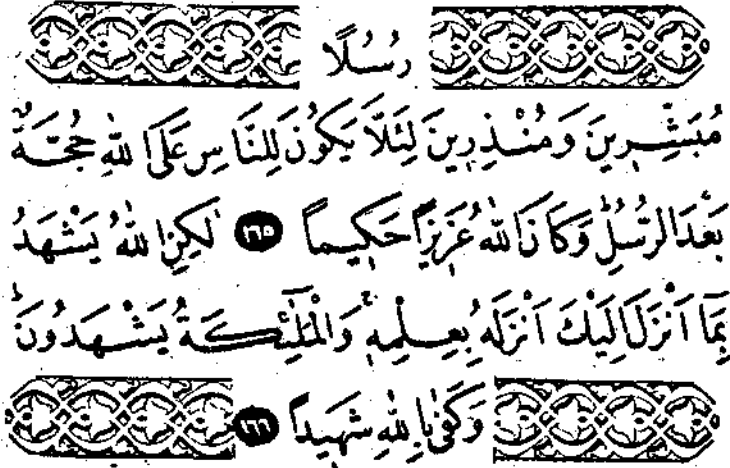 رُسُلًا
مُبَشِّرِينَ وَمُنْذِرِينَ لِئَلَّا يَكُونَ لِلنَّاسِ عَلَى اللّٰهِ حُجَّةٌ
بَعْدَ الرُّسُلِۜ وَكَانَ اللّٰهُ عَزِيزًا حَكِيمًا ١٦٥ لٰكِنِ اللّٰهُ يَشْهَدُ
بِمَٓا اَنْزَلَ اِلَيْكَ اَنْزَلَهُ بِعِلْمِهٖۚ وَالْمَلٰٓئِكَةُ يَشْهَدُونَۜ
وَكَفٰى بِاللّٰهِ شَهِيدًا ١٦٦